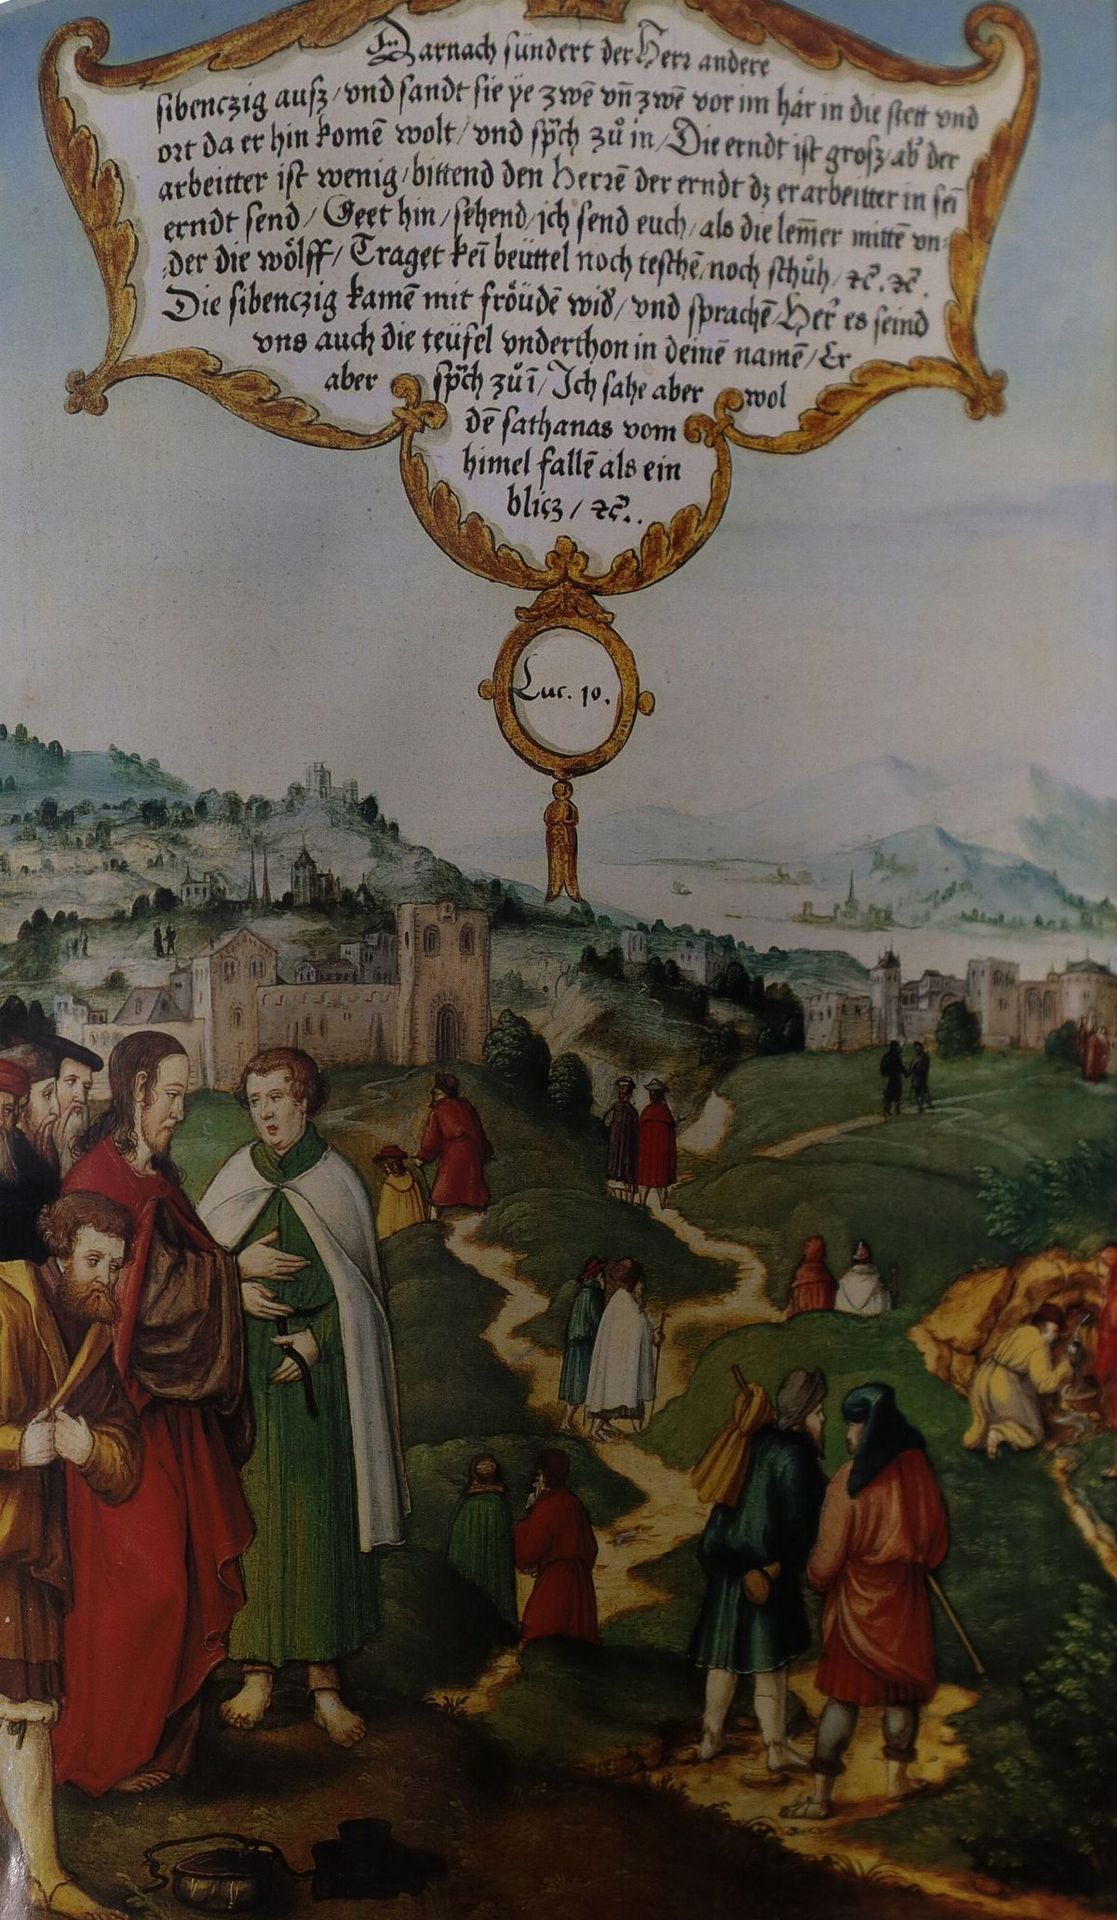 Darnach sündert der Herr andere
sibenczig ausz / vnd sandt sie ye zwē vñ zwē vor im här in die stett vnd
ort da er hin komē wolt / vnd sp̄ch zů in / Die erndt ist grosz / ab̉ der
arbeitter ist wenig / bittend den Herrē der erndt dz er arbeitter in sēi
erndt send / Geet hin / sehend / ich send euch / als die lem̄er mittē vn=
der die wölff / Traget kēi beüttel noch teschē / noch schůh / ꝛc̄. ꝛc̄.
Die sibenczig kamē mit fröudē wid̉ / vnd sprachē / Her̉ es seind
vns auch die teüfel vnderthon in deinē namē / Er
aber sp̄ch zů ī / Ich sahe aber wol
dē sathanas vom
himel fallē als ein
blicz / ꝛc̄.
Luc. 10.